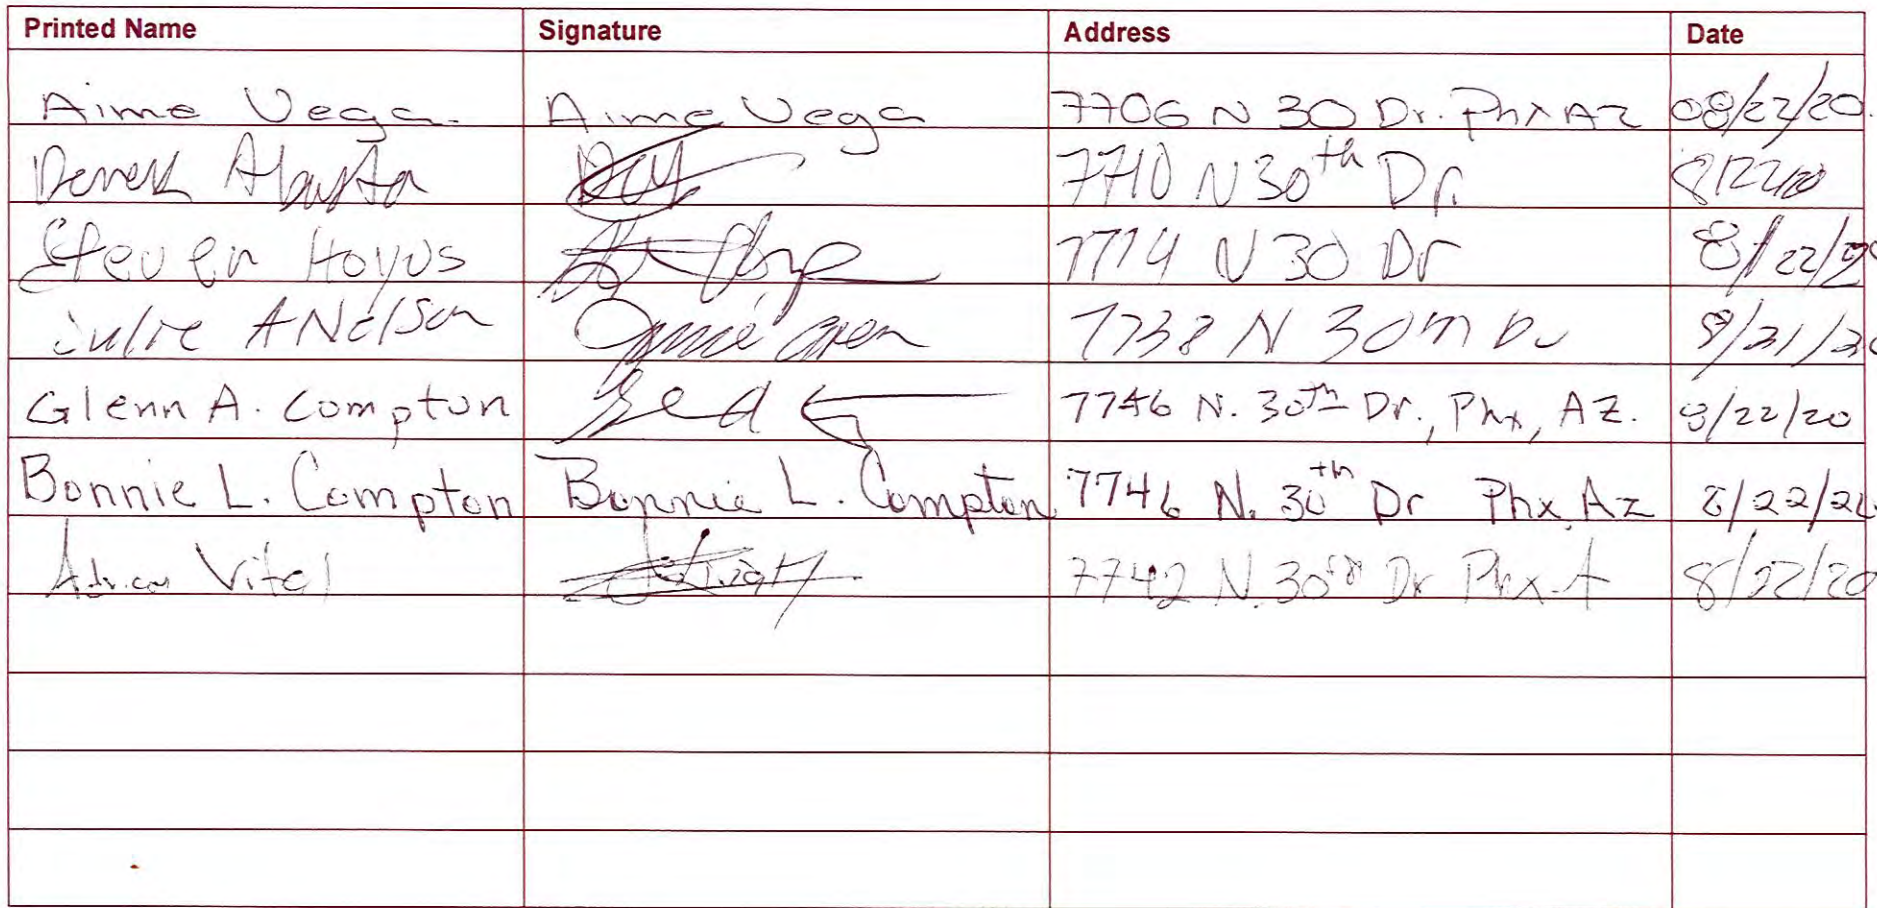 Printed Name Signature Address Date
Aime Vega. Aime Vega 7706 N 30 Dr. Phx AZ 08/22/20.
Derek 7710 N 30th Dr.
Steven Hoyos 7714 N 30 Dr 8/22/20
Julie A Nelson 7738 N 30 8/21/20
Glenn A. Compton 7746 N. 30th Dr., Phx, AZ. 8/22/20
Bonnie L. Compton Bonnie L. Compton 7746 N. 30th Dr Phx, Az 8/22/20
Adrian Vital 7742 N. 30 Dr Phx. A 8/22/20